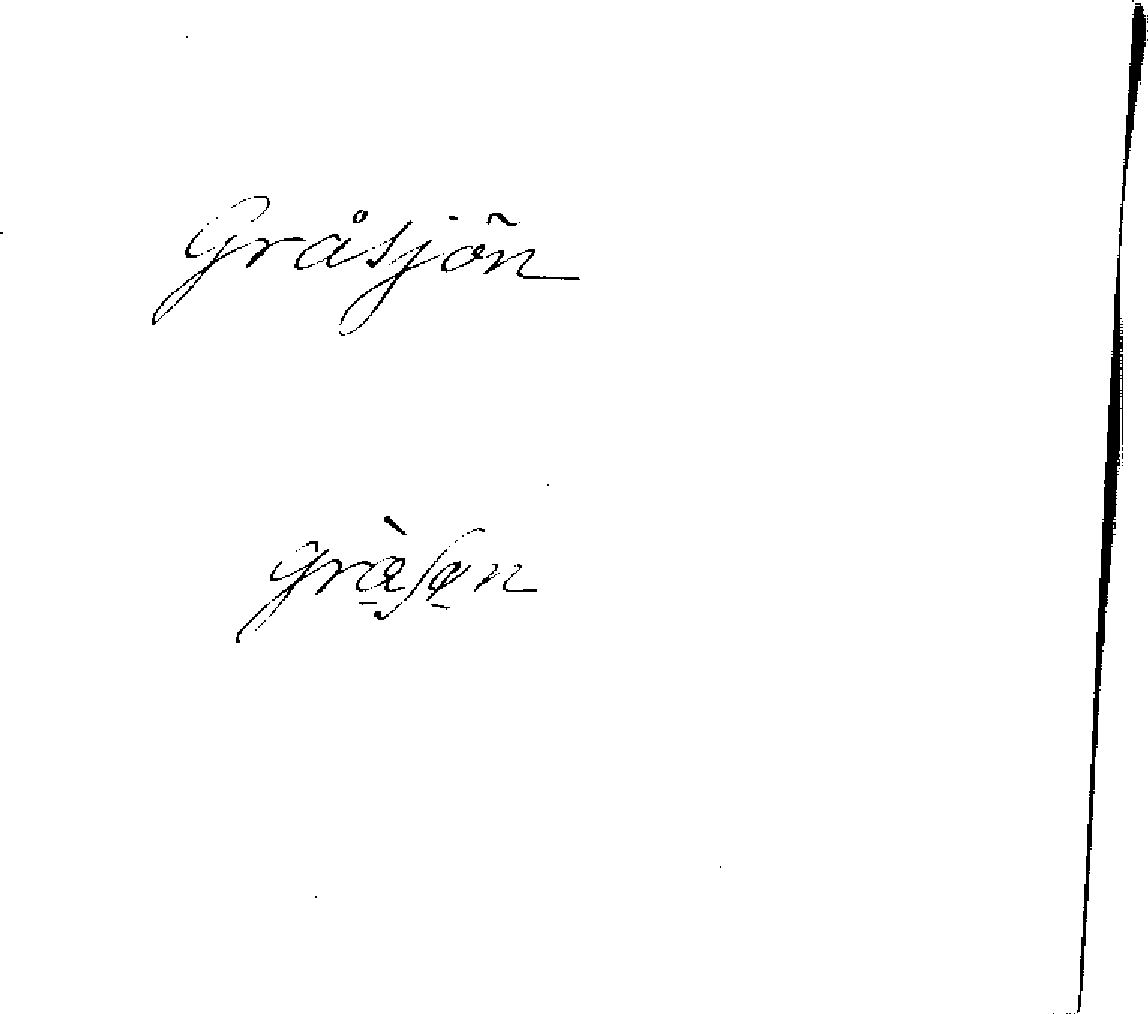 Gråsjön
græ̱̀ſø̱n